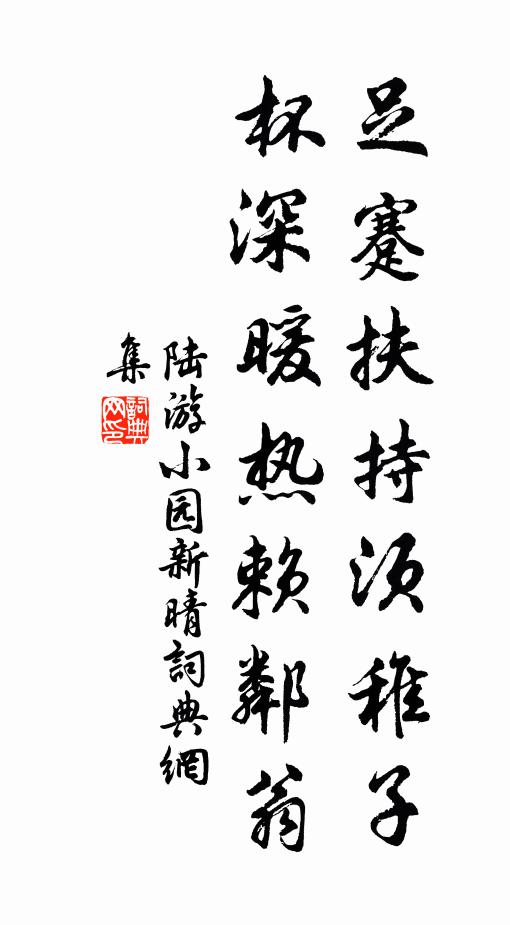 足蹇扶持须稚子
杯深暖热赖鄰翁
陆游小园新晴詞典網
集
詞典
网印